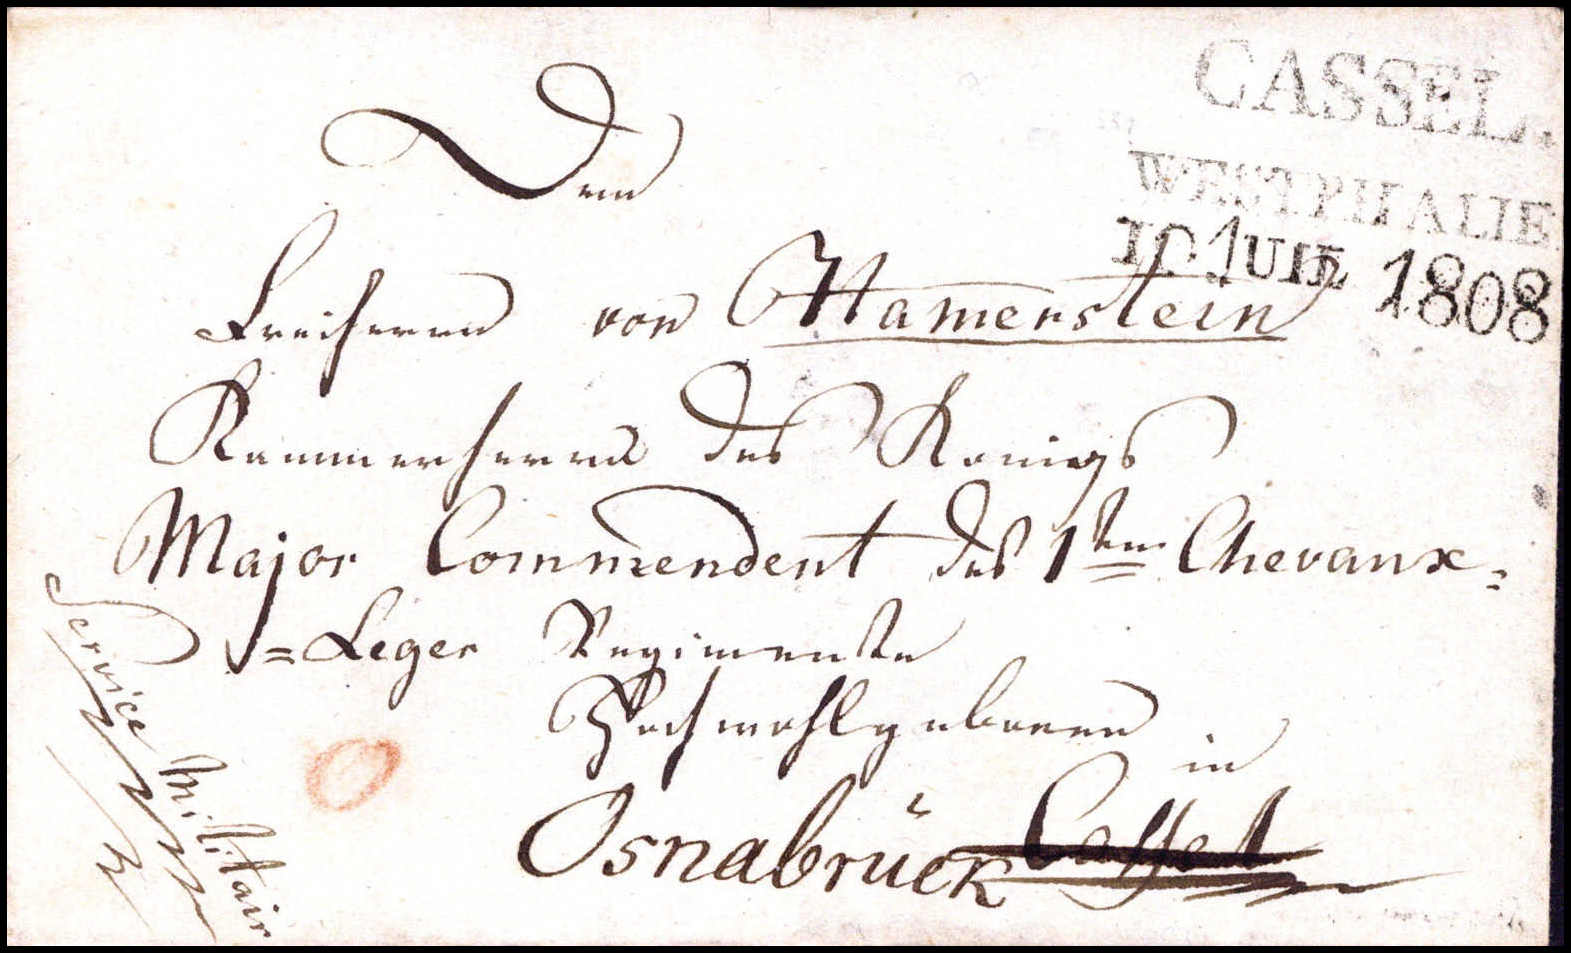 CASSEL.
WESTPHALIE
10 JUIL 1808
Dem
Freiherrn von Hamerstein
Kammerherrn des Konigs
Major Commendent des 1ten Chevaux=
=Leger Regimente
Hochwohlgeboren
in
Osnabrück Cassel
Service Militair